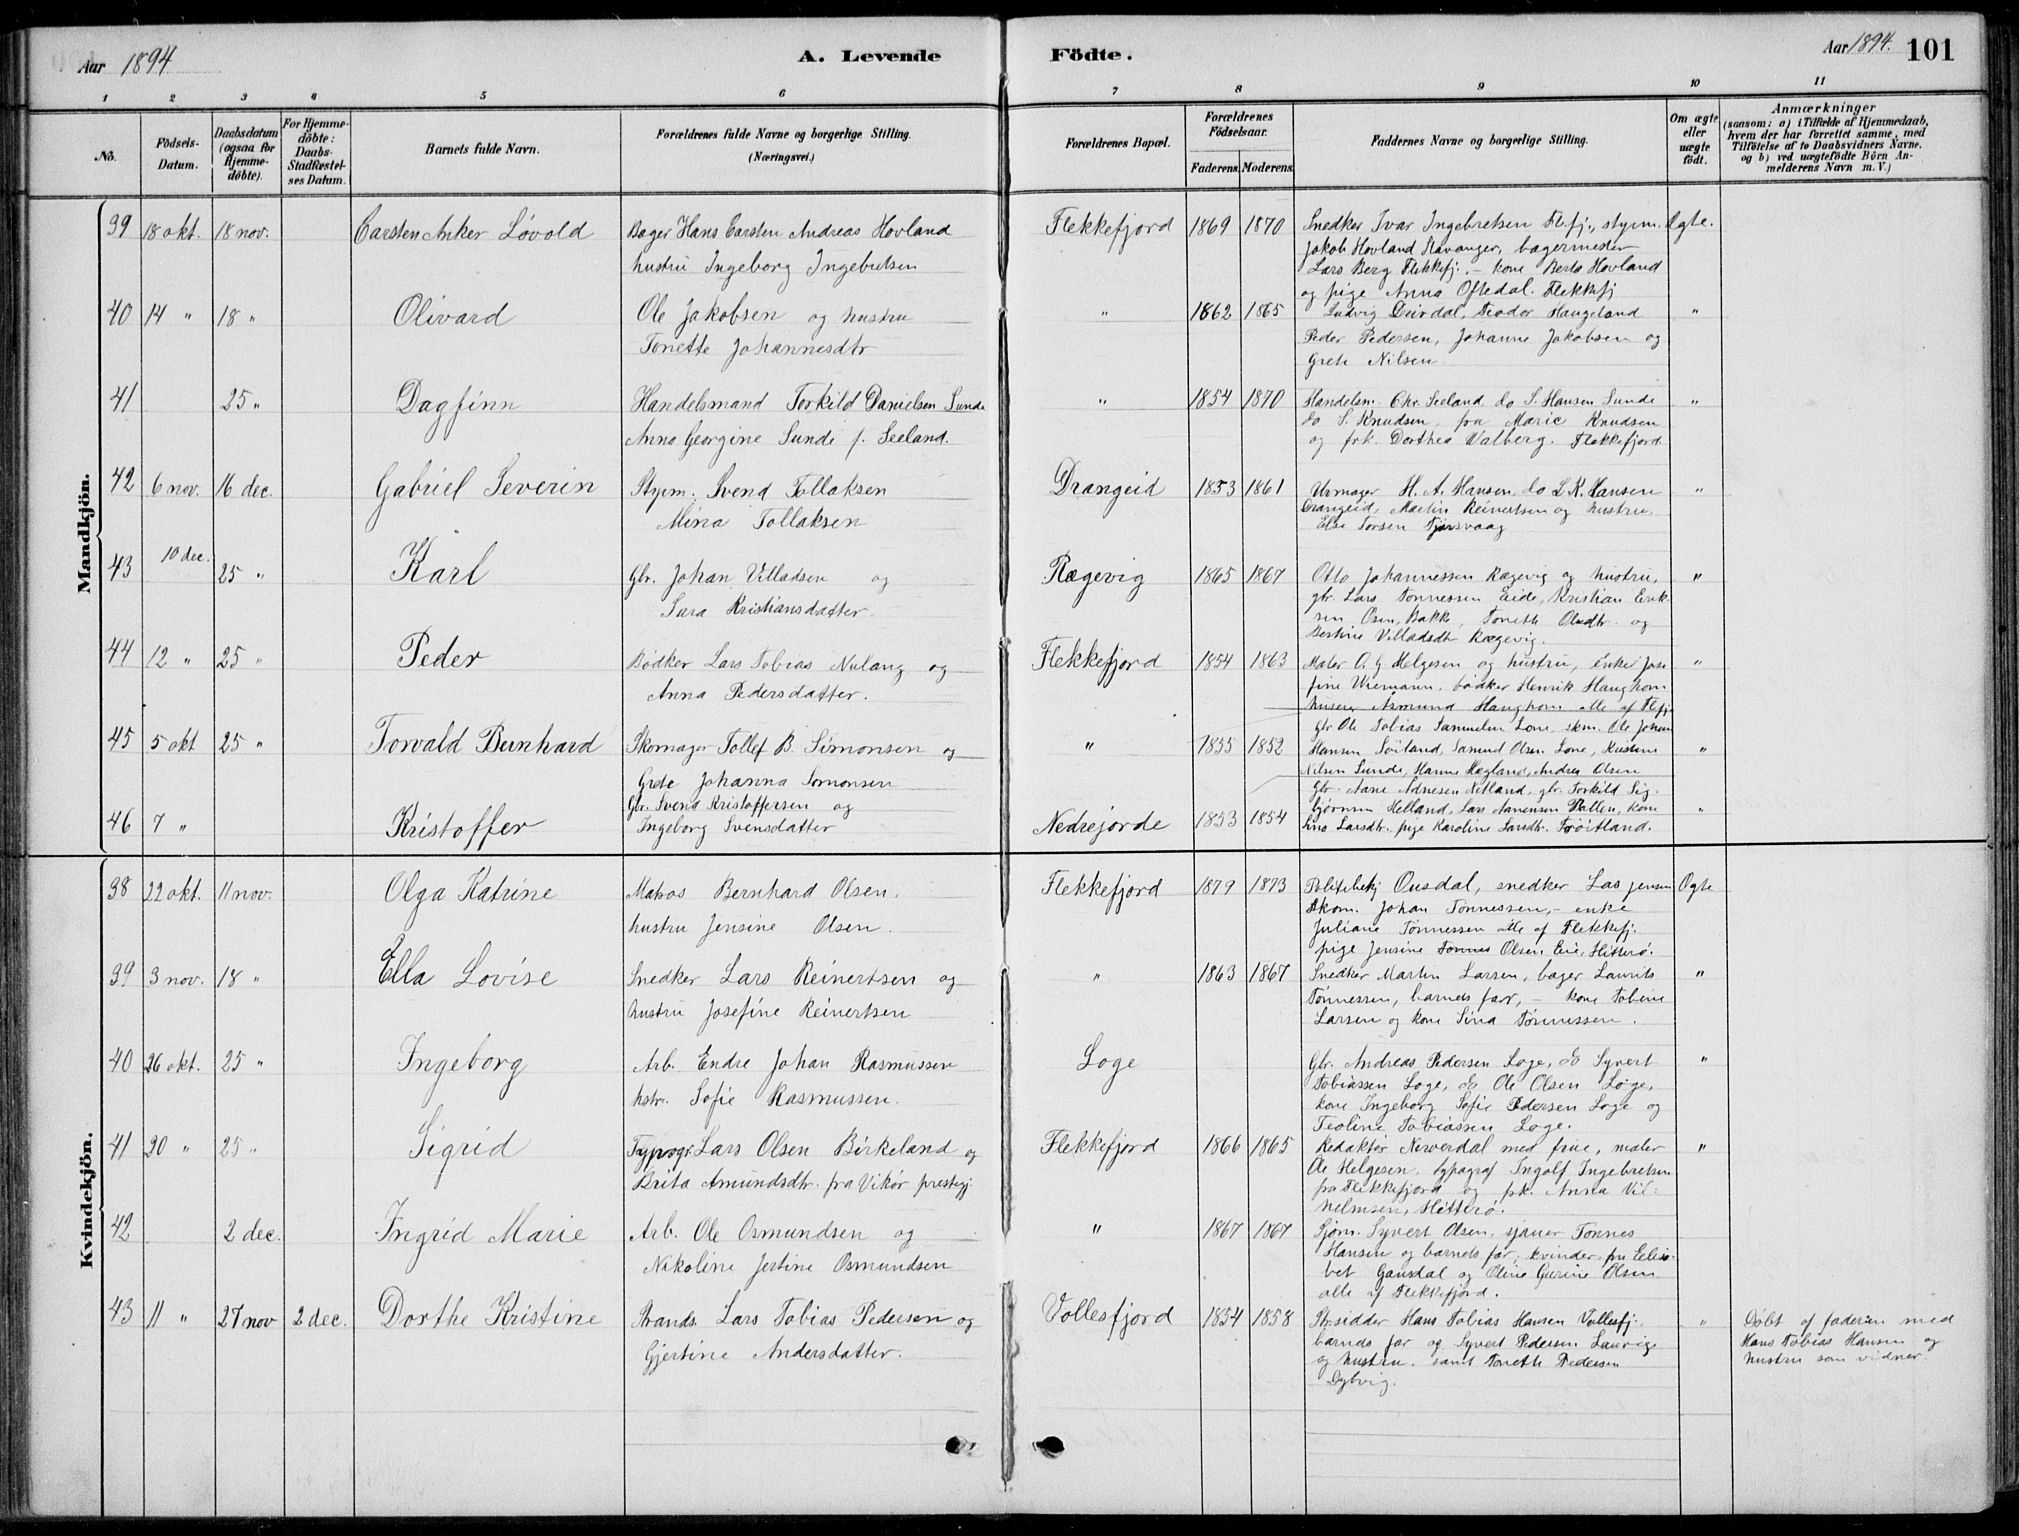 Aar 1894
A. Levende Födte.
Aar 1894. 101
1 2 3 4 5 6 7 8 9 10 11
No.
Födsels-Datum.
Daabsdatum (ogsaa for Hjemme-döbte).
For Hjemme-döbte: Daabs-Stadfæstel-ses Datum.
Barnets fulde Navn.
Forældrenes fulde Navne og borgerlige Stilling.
(Næringsvei.)
Forældrenes Bopæl.
Forældrenes Födselsaar.
Faderens. Moderens.
Faddernes Navne og borgerlige Stilling.
Om ægte eller uægte födt.
Anmærkninger
(saasom: a) i Tilfælde af Hjemmedaab,
hvem der har forrettet samme, med
Tilföielse af to Daabsvidners Navne.
og b) ved uægtefödte Börn An-
melderens Navn m. V.)
Mandkjön.
39 18 okt. 18 nov. Carsten Anker Lövold
Bager Hans Carsten Andreas Hovland
hustru Ingeborg Ingebretsen
Flekkefjord 1869 1870
Snedker Ivar Ingebretsen Flfj., styrm. Ægte.
Jakob Hovland Stavanger, bagermester
Lars Berg Flekkefj. – kone Berta Hovland
og pige Anna Oftedal. Flekkefj
40 14 " 18 " Olivard
Ole Jakobsen og hustru
Tonette Johannesdtr
" 1862 1865
Ludvig Deirdal, Teodor Haugeland "
Peder Pedersen, Johanne Jakobsen og
Grete Nilsen
41 25 " Dagfinn
Handelsmand Torkild Danielsen Sunde
Anna Georgine Sunde f. Seeland.
" 1854 1870
Handelsm. Chr. Seeland do S. Hansen Sunde "
do S. Knudsen, fra Marie Knudsen
og frk. Dorthea Valberg. Flekkefjord
42 6 nov. 16 dec. Gabriel Severin
Styrm. Svend Tollaksen
Mina Tollaksen
Drangeid 1853 1861
Urmager H. A. Hansen, do L. K. Hansen "
Drangeid, Martin Reinertsen og hustru,
Else Torsen Tjørsvaag
43 10 dec. 25 " Karl
Gbr. Johan Villadsen og
Sara Kristiansdatter.
Rægevig 1865 1867
Otto Johannessen Rægevig og hustru, "
gbr. Lars Tönnessen Eide, Kristian Erik-
sen Osen, Bakk, Tonette Olsdtr. og
Bertine Villadsdt Rægevig.
44 12 " 25 " Peder
Bödker Lars Tobias Nulang og
Anna Pedersdatter.
Flekkefjord 1854 1863
Maler O. G. Helgesen og hustru, enke Jose "
fine Wiemann, bödker Henrik Haughom
Asmund Haughom alle af Flfj.
45 5 okt 25 " Torvald Bernhard
Skomager Tollef B. Simonsen og
Grete Johanna Simonsen
" 1855 1852
Gbr Ole Tobias Samuelsen Lone, skm. Ole Johan
Hansen Söiland, Samuel Olsen Lone, Kristine "
Nilsen Sunde, Hanne Hægland, Andrea Olsen
46 7 " Kristoffer
Gbr. Svend Kristoffersen og
Ingeborg Svensdatter
Nedrejorde 1853 1854
Gbr. Aane Adnesen Netland, gbr. Torkild Sig-
björnsen Helland, Lars Aanensen Vatlen, kone "
Lina Larsdtr. pige Karoline Larsdtr. Tröitland.
Kvindekjön.
38 22 okt. 11 nov. Olga Katrine
Matros Bernhard Olsen.
hustru Jensine Olsen.
Flekkefjord 1879 1873
Politibetj Ousdal, snedker Las Jensen Ægte
Skom. Johan Tönnessen, – enke
Juliane Tönnessen alle af Flekkefj.
pige Jensine Tonnes Olsen Eie, Hitterö.
39 3 nov. 18 " Ella Lovise
Snedker Lars Reinertsen og
hustru Josefine Reinertsen
" 1863 1867
Snedker Martin Larsen, bager Laurits "
Tönnessen, barnets far, – kone Tobine
Larsen og kone Sina Tönnessen.
40 26 okt. 25 " Ingeborg
Arb. Endre Johan Rasmussen
hstr. Sofie Rasmussen.
Loge
Gbr. Andreas Pedersen Loge, do Syvert "
Tobiassen Loge, do Ole Olsen Loge,
kone Ingeborg Sofie Pedersen Loge og
Teoline Tobiassen Loge.
41 20 " 25 " Sigrid
Typogr. Lars Olsen Birkeland og
Brita Amundsdtr. fra Vikör prestegj.
Flekkefjord 1866 1865
Redaktör Neverdal med frue, maler "
Ole Helgesen, typograf Ingolf Ingebretsen
fra Flekkefjord og frk. Anna Vil-
helmsen, Hitterö.
42 2 dec. Ingrid Marie
Arb. Ole Osmundsen og
Nikoline Jertine Osmundsen
" 1867 1867
Sjöm. Syvert Olsen, sjauer Tönnes
Hansen og barnets far; kvinder: fru Elisa-
bet Gausdal og Oline Gurine Olsen
alle af Flekkefjord.
43 11 " 27 nov 2 dec. Dorthe Kristine
Strands. Lars Tobias Pedersen og
Gjertine Andersdatter.
Vollesfjord 1854 1858
Stpsidder Hans Tobias Hansen Vollesfj. "
barnets far og Syvert Pedersen Laurvig
og hustru. samt Tonette Pedersen
Dybvig.
Döbt af faderen med
Hans Tobias Hansen og
hustru som vidner.